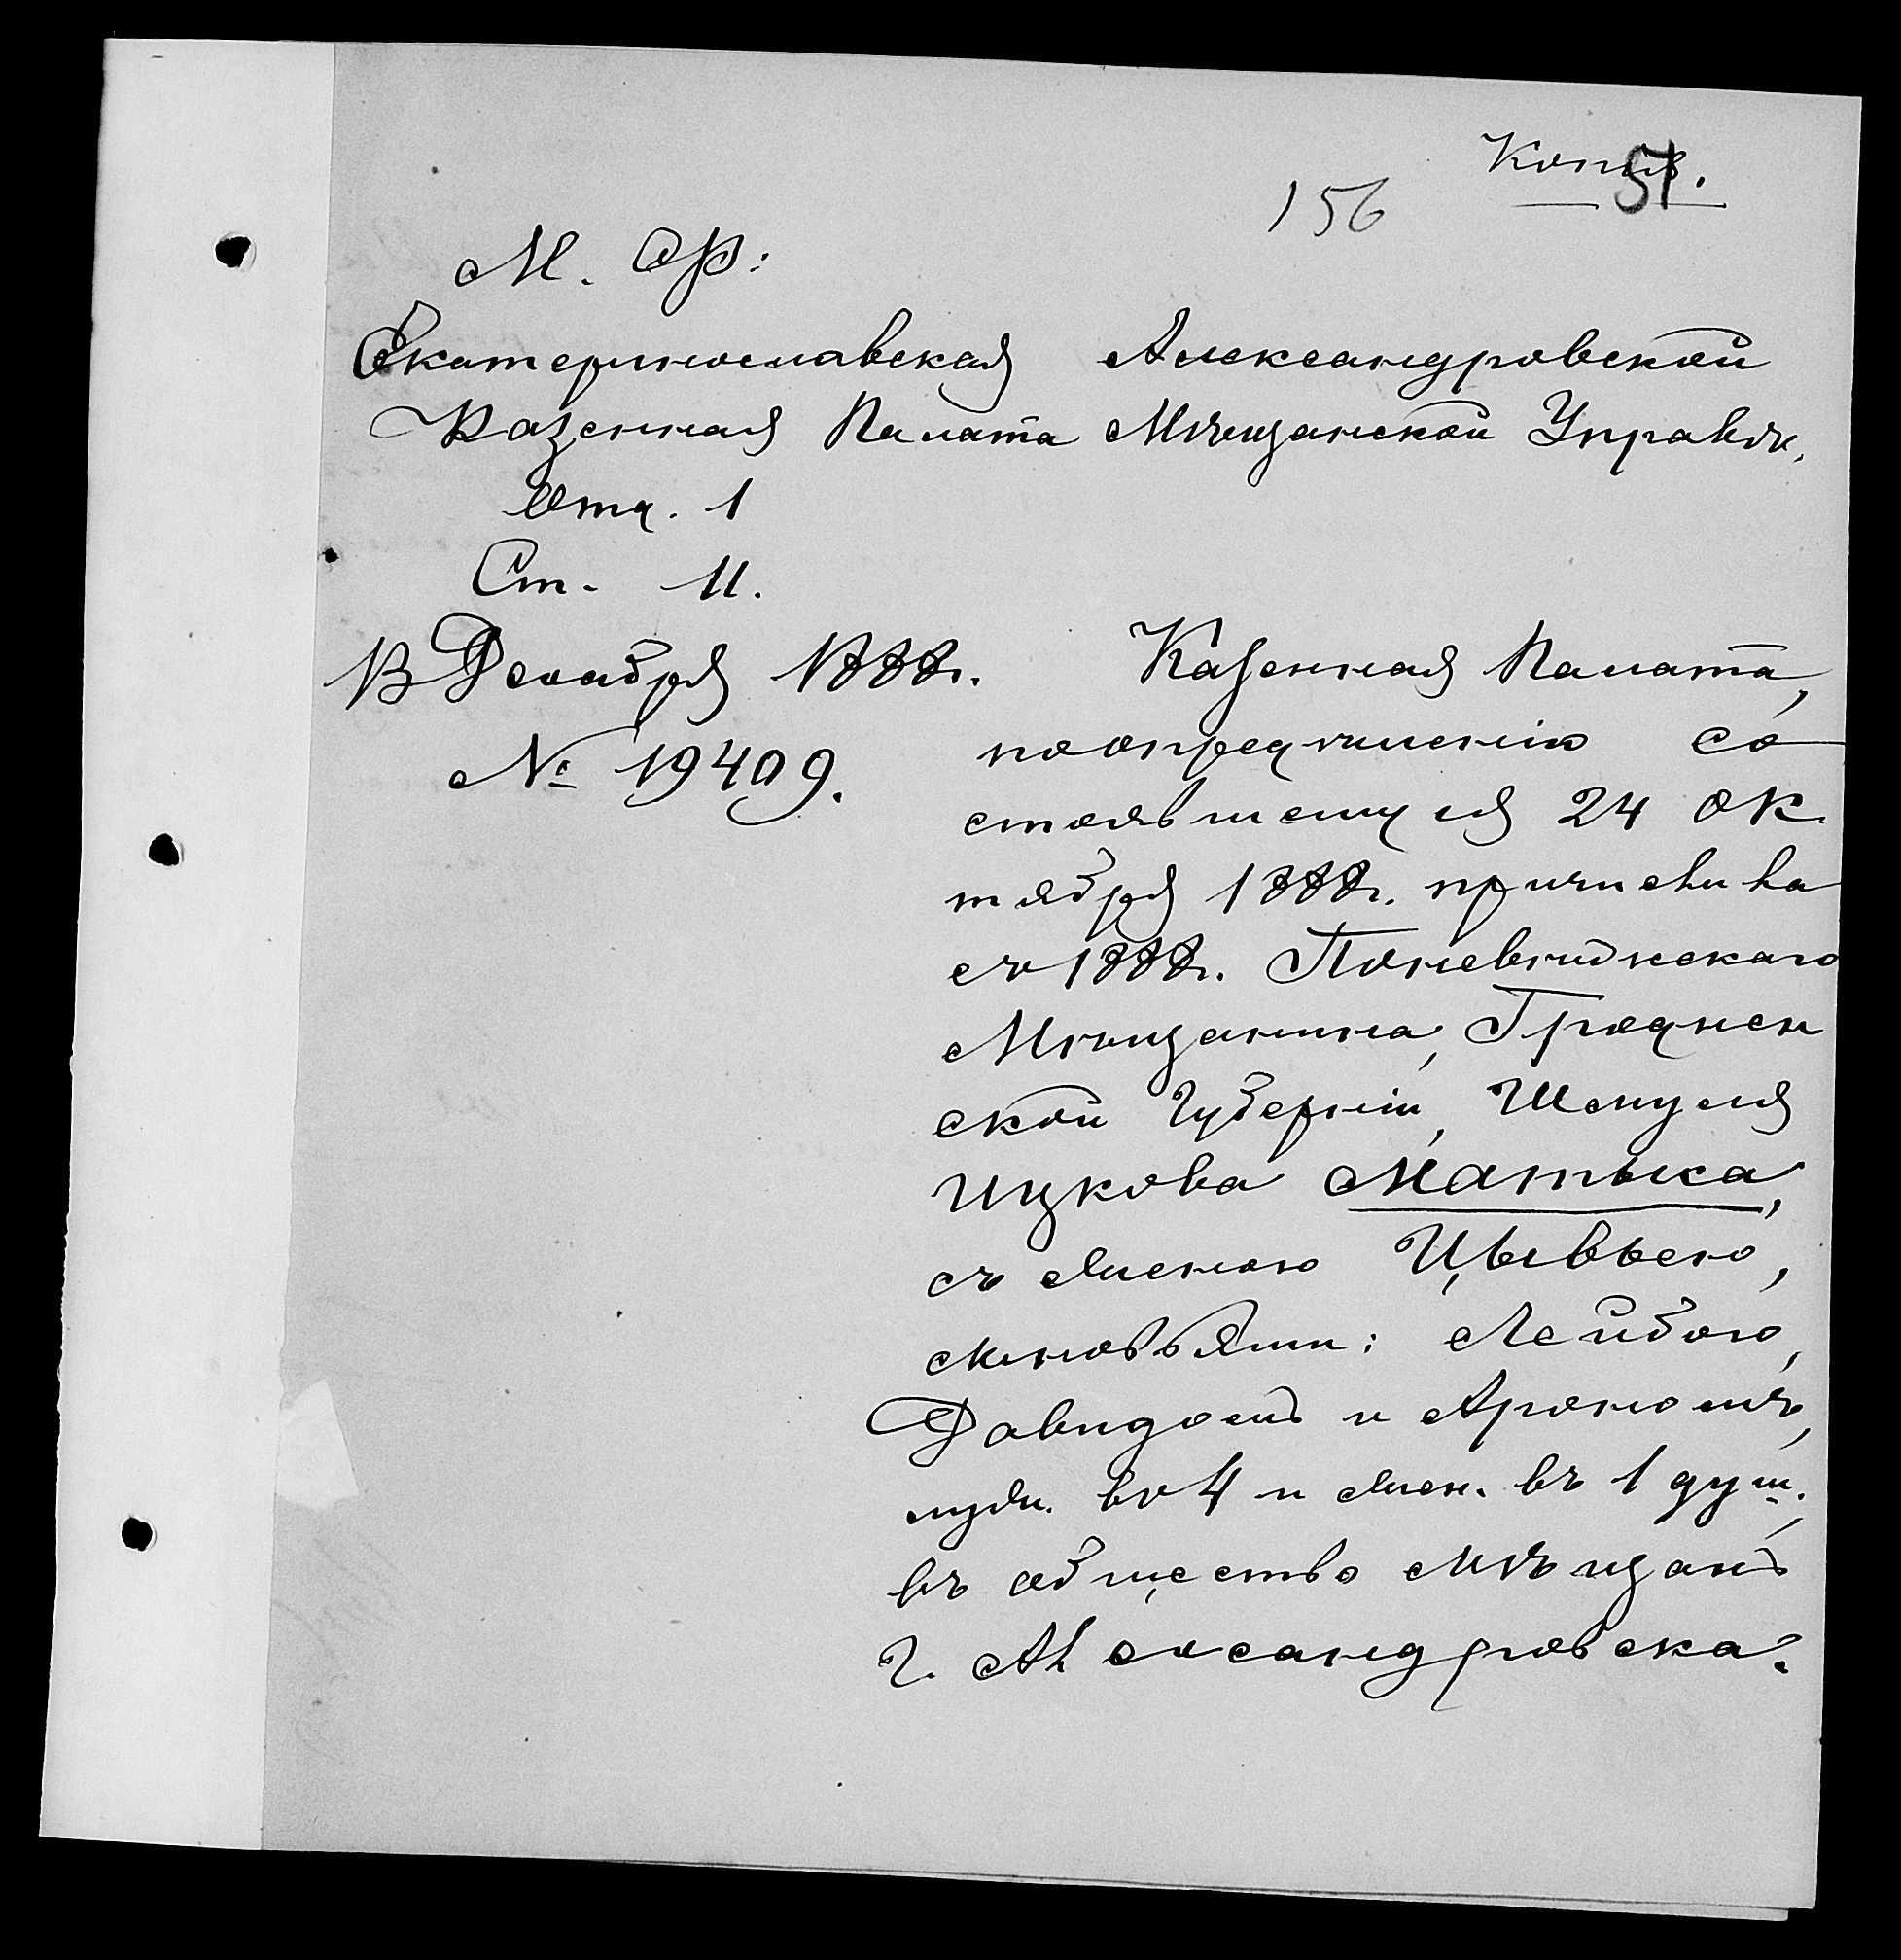 Копія.
51
156
М. Ф:
Екатеринославская
Казенная Палата
Отд. 1
Ст. II.
13 Декабря 1888г.
№ 19409.
Александровской
Мѣщанской Управѣ.
Казенная Палата,
по опредѣленію со
стоявшемуся 24 Ок
тября 1888г. причислила
съ 1888г.
Мѣщанина, Гроднен
ской Губерніи, Шмуля
Ицкова Матыка,
съ женою Цывьею,
сыновьями: Лейбою,
Давидомъ и Арономъ,
муж. въ 4 и жен. въ 1 душ.,
въ общество мѣщанъ
г. Александровска.